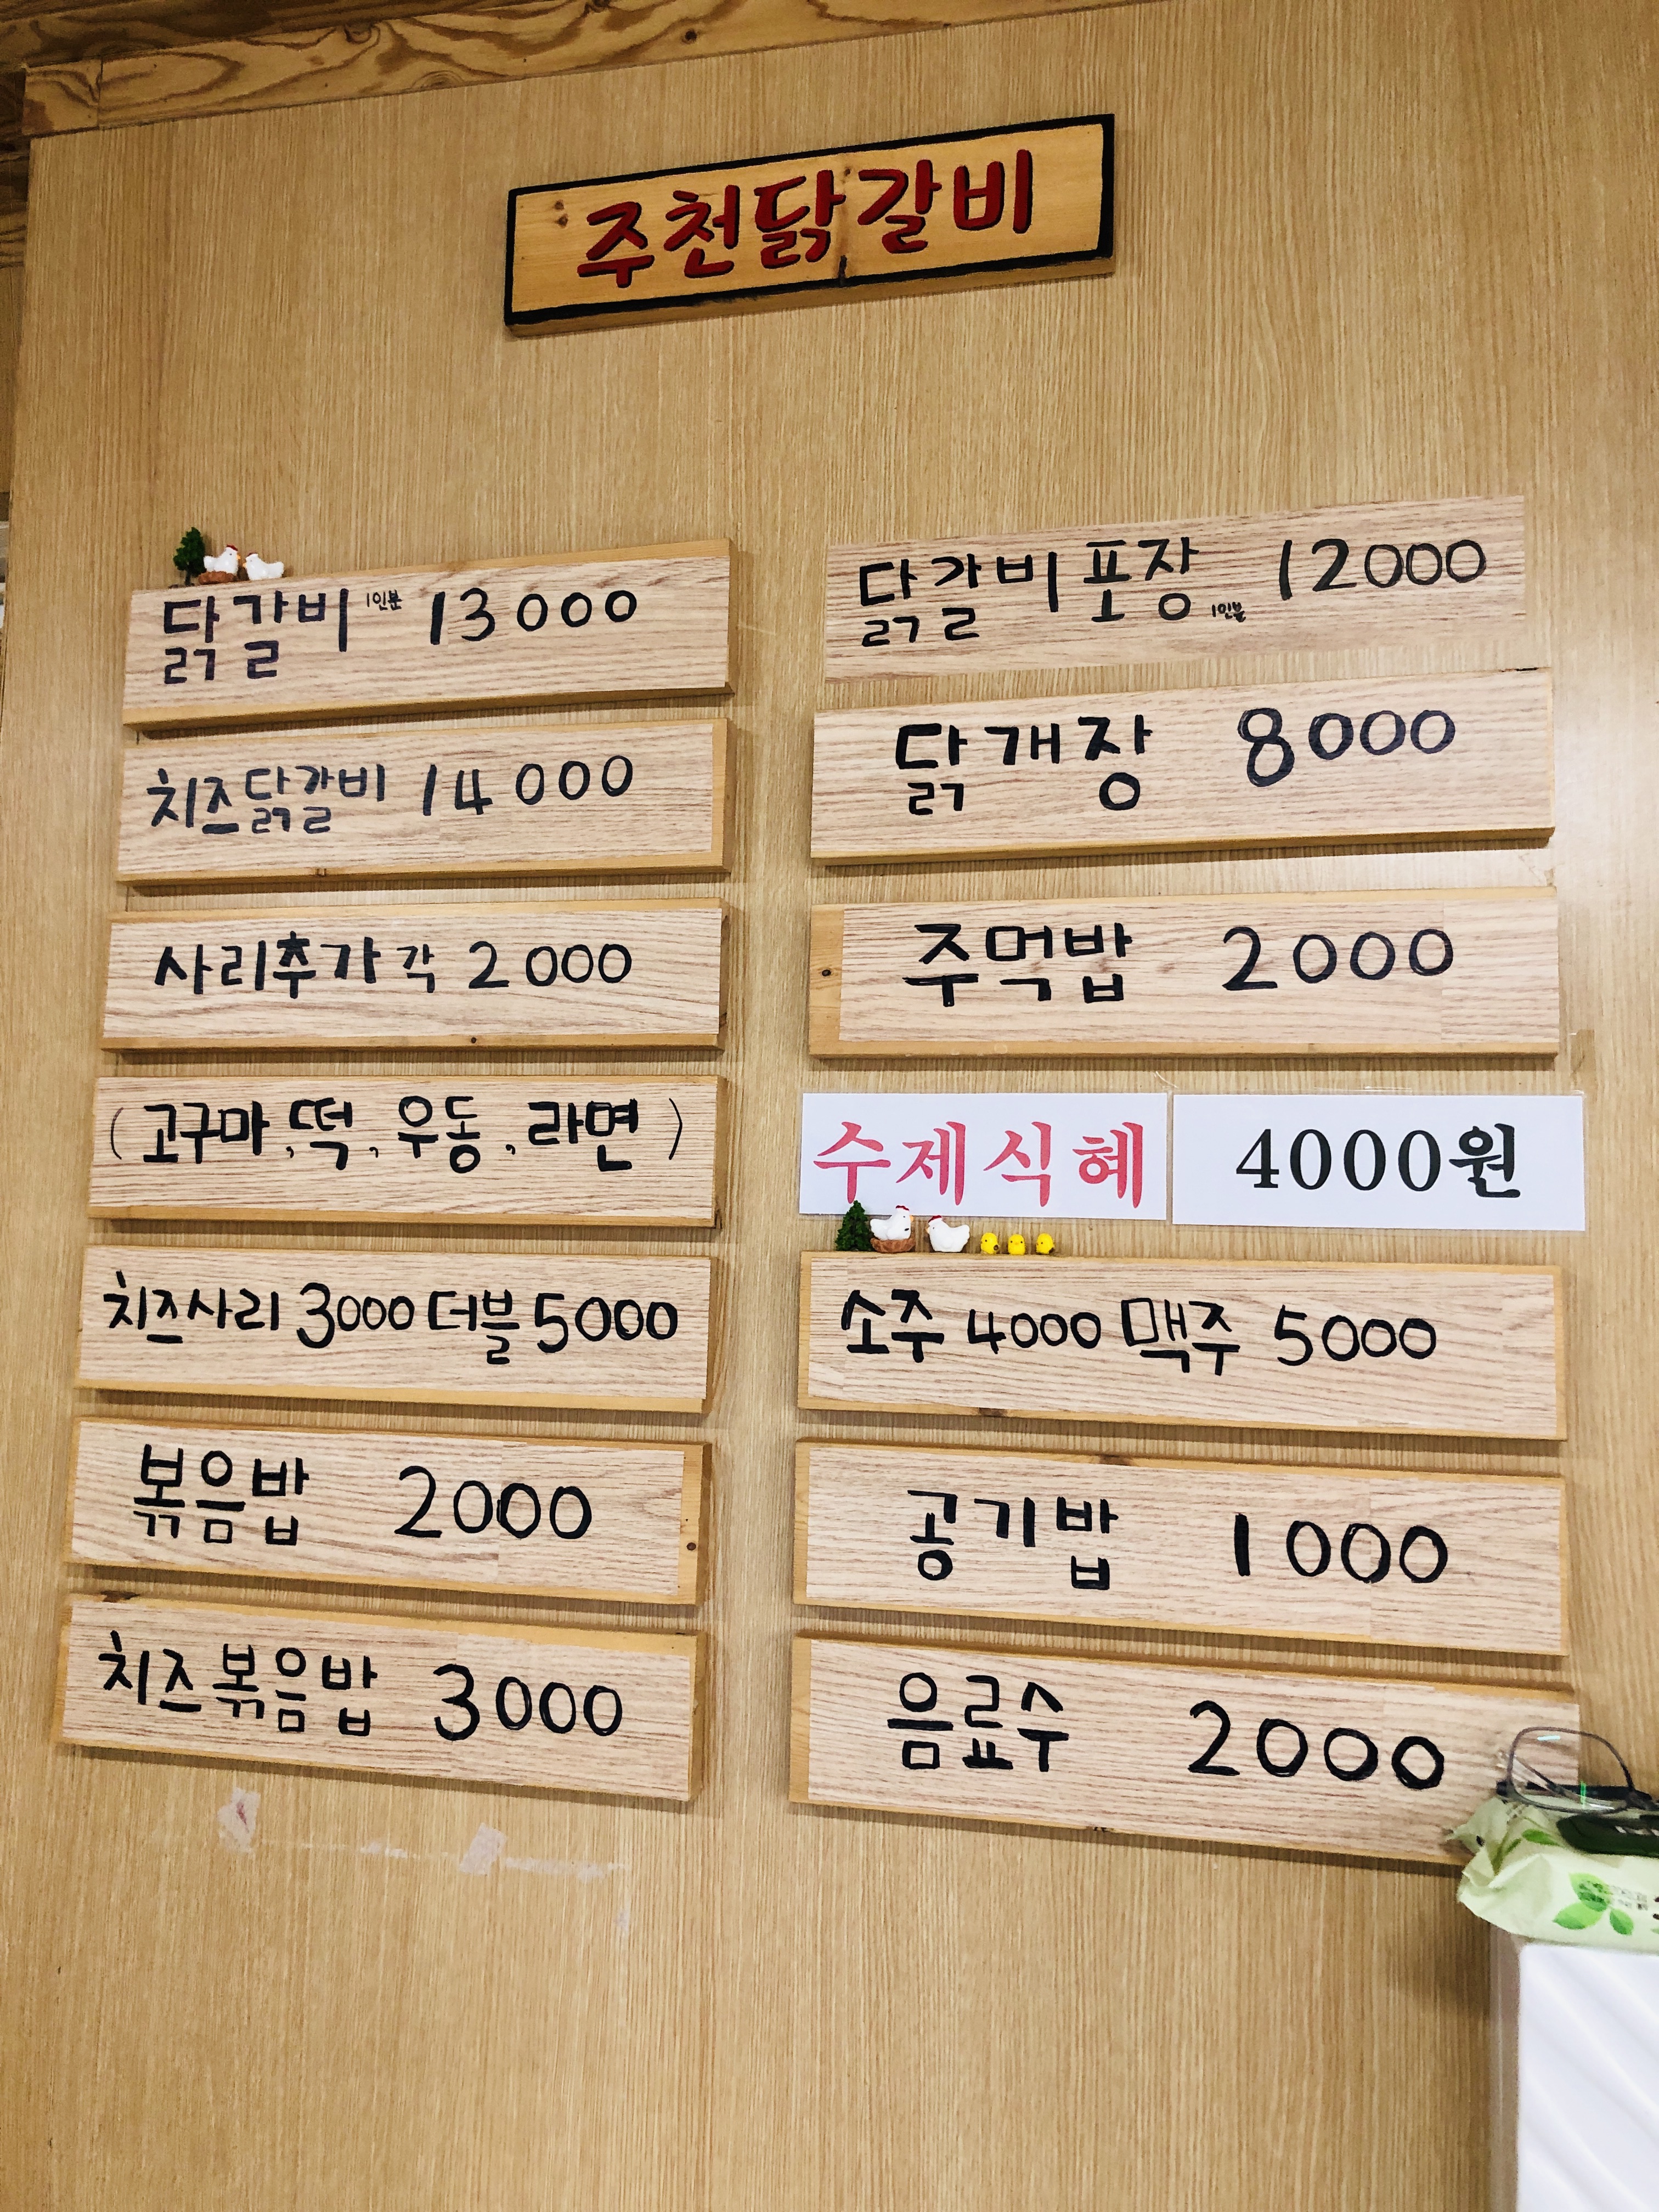 주천닭갈비
닭갈비 1인분 13000
치즈닭갈비 14000
사리추가 각 2000
(고구마, 떡, 우동, 라면)
치즈사리 3000 더블 5000
볶음밥 2000
치즈볶음밥 3000
닭갈비 포장 1인분 12000
닭개장 8000
주먹밥 2000
수제식혜 4000원
소주 4000 맥주 5000
공기밥 1000
음료수 2000